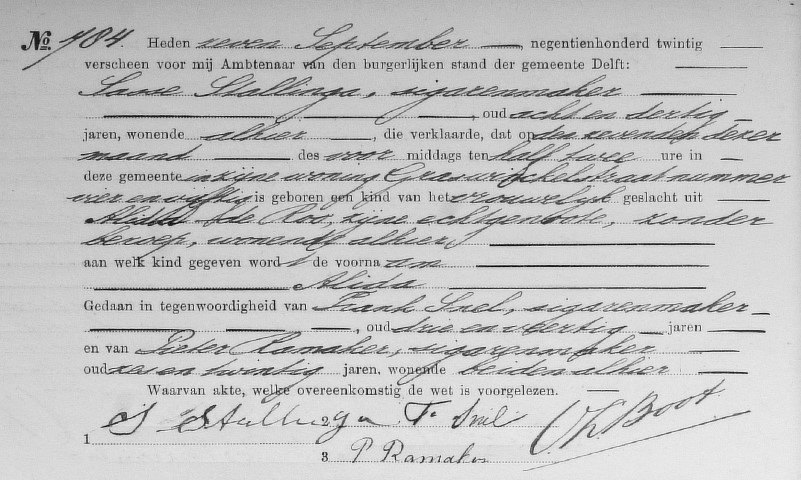 No. 784. Heden zeven September, negentienhonderd twintig
verscheen voor mij Ambtenaar van den burgerlijken stand der gemeente Delft:
Stallinga, sigarenmaker
, oud acht en dertig
jaren, wonende alhier, die verklaarde, dat op den zevenden dezer
maand des voor middags ten half twee ure in
deze gemeente in zijne woning Graswinckelstraat nummer
vier en vijftig is geboren een kind van het vrouwelijk geslacht uit
Alida de Roo, zijne echtgenoote, zonder
beroep, wonende alhier
aan welk kind gegeven word t de voorna am
Alida
Gedaan in tegenwoordigheid van Frank Snel, sigarenmaker
, oud drie en veertig jaren
en van Pieter Ramaker, sigarenmaker
oud zes en twintig jaren, wonende beiden alhier
Waarvan akte, welke overeenkomstig de wet is voorgelezen.
1 S Stallinga 2 F. Snel Boot
3 P Ramaker